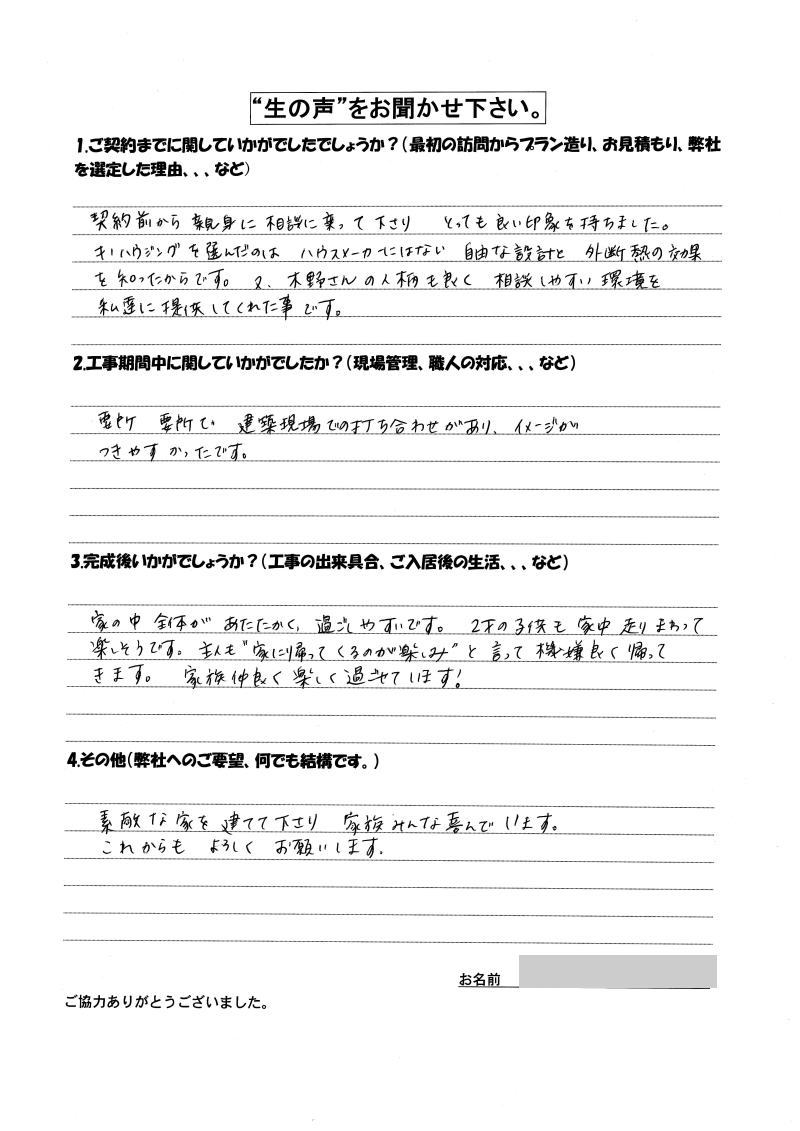 “生の声”をお聞かせ下さい。
1.ご契約までに関していかがでしたでしょうか？（最初の訪問からプラン造り、お見積もり、弊社
を選定した理由、、、など）
契約前から 親身に相談に乗って下さり とっても良い印象を持ちました。
キノハウジングを選んだのは ハウスメーカーにはない 自由な設計と 外断熱の効果
を知ったからです。 又、木野さんの人柄も良く 相談しやすい環境を
私達に提供してくれた事です。
2.工事期間中に関していかがでしたか？（現場管理、職人の対応、、、など）
要所 要所で 建築現場での打ち合わせがあり、イメージが
つきやすかったです。
3.完成後いかがでしょうか？（工事の出来具合、ご入居後の生活、、、など）
家の中 全体が あたたかく、過ごしやすいです。 2才の子供も 家中 走りまわって
楽しそうです。主人も“家に帰ってくるのが楽しみ”と言って機嫌良く帰って
きます。 家族仲良く楽しく過せています！
4.その他（弊社へのご要望、何でも結構です。）
素敵な家を建てて下さり 家族みんな喜んでいます。
これからも よろしく お願いします。
お名前
ご協力ありがとうございました。